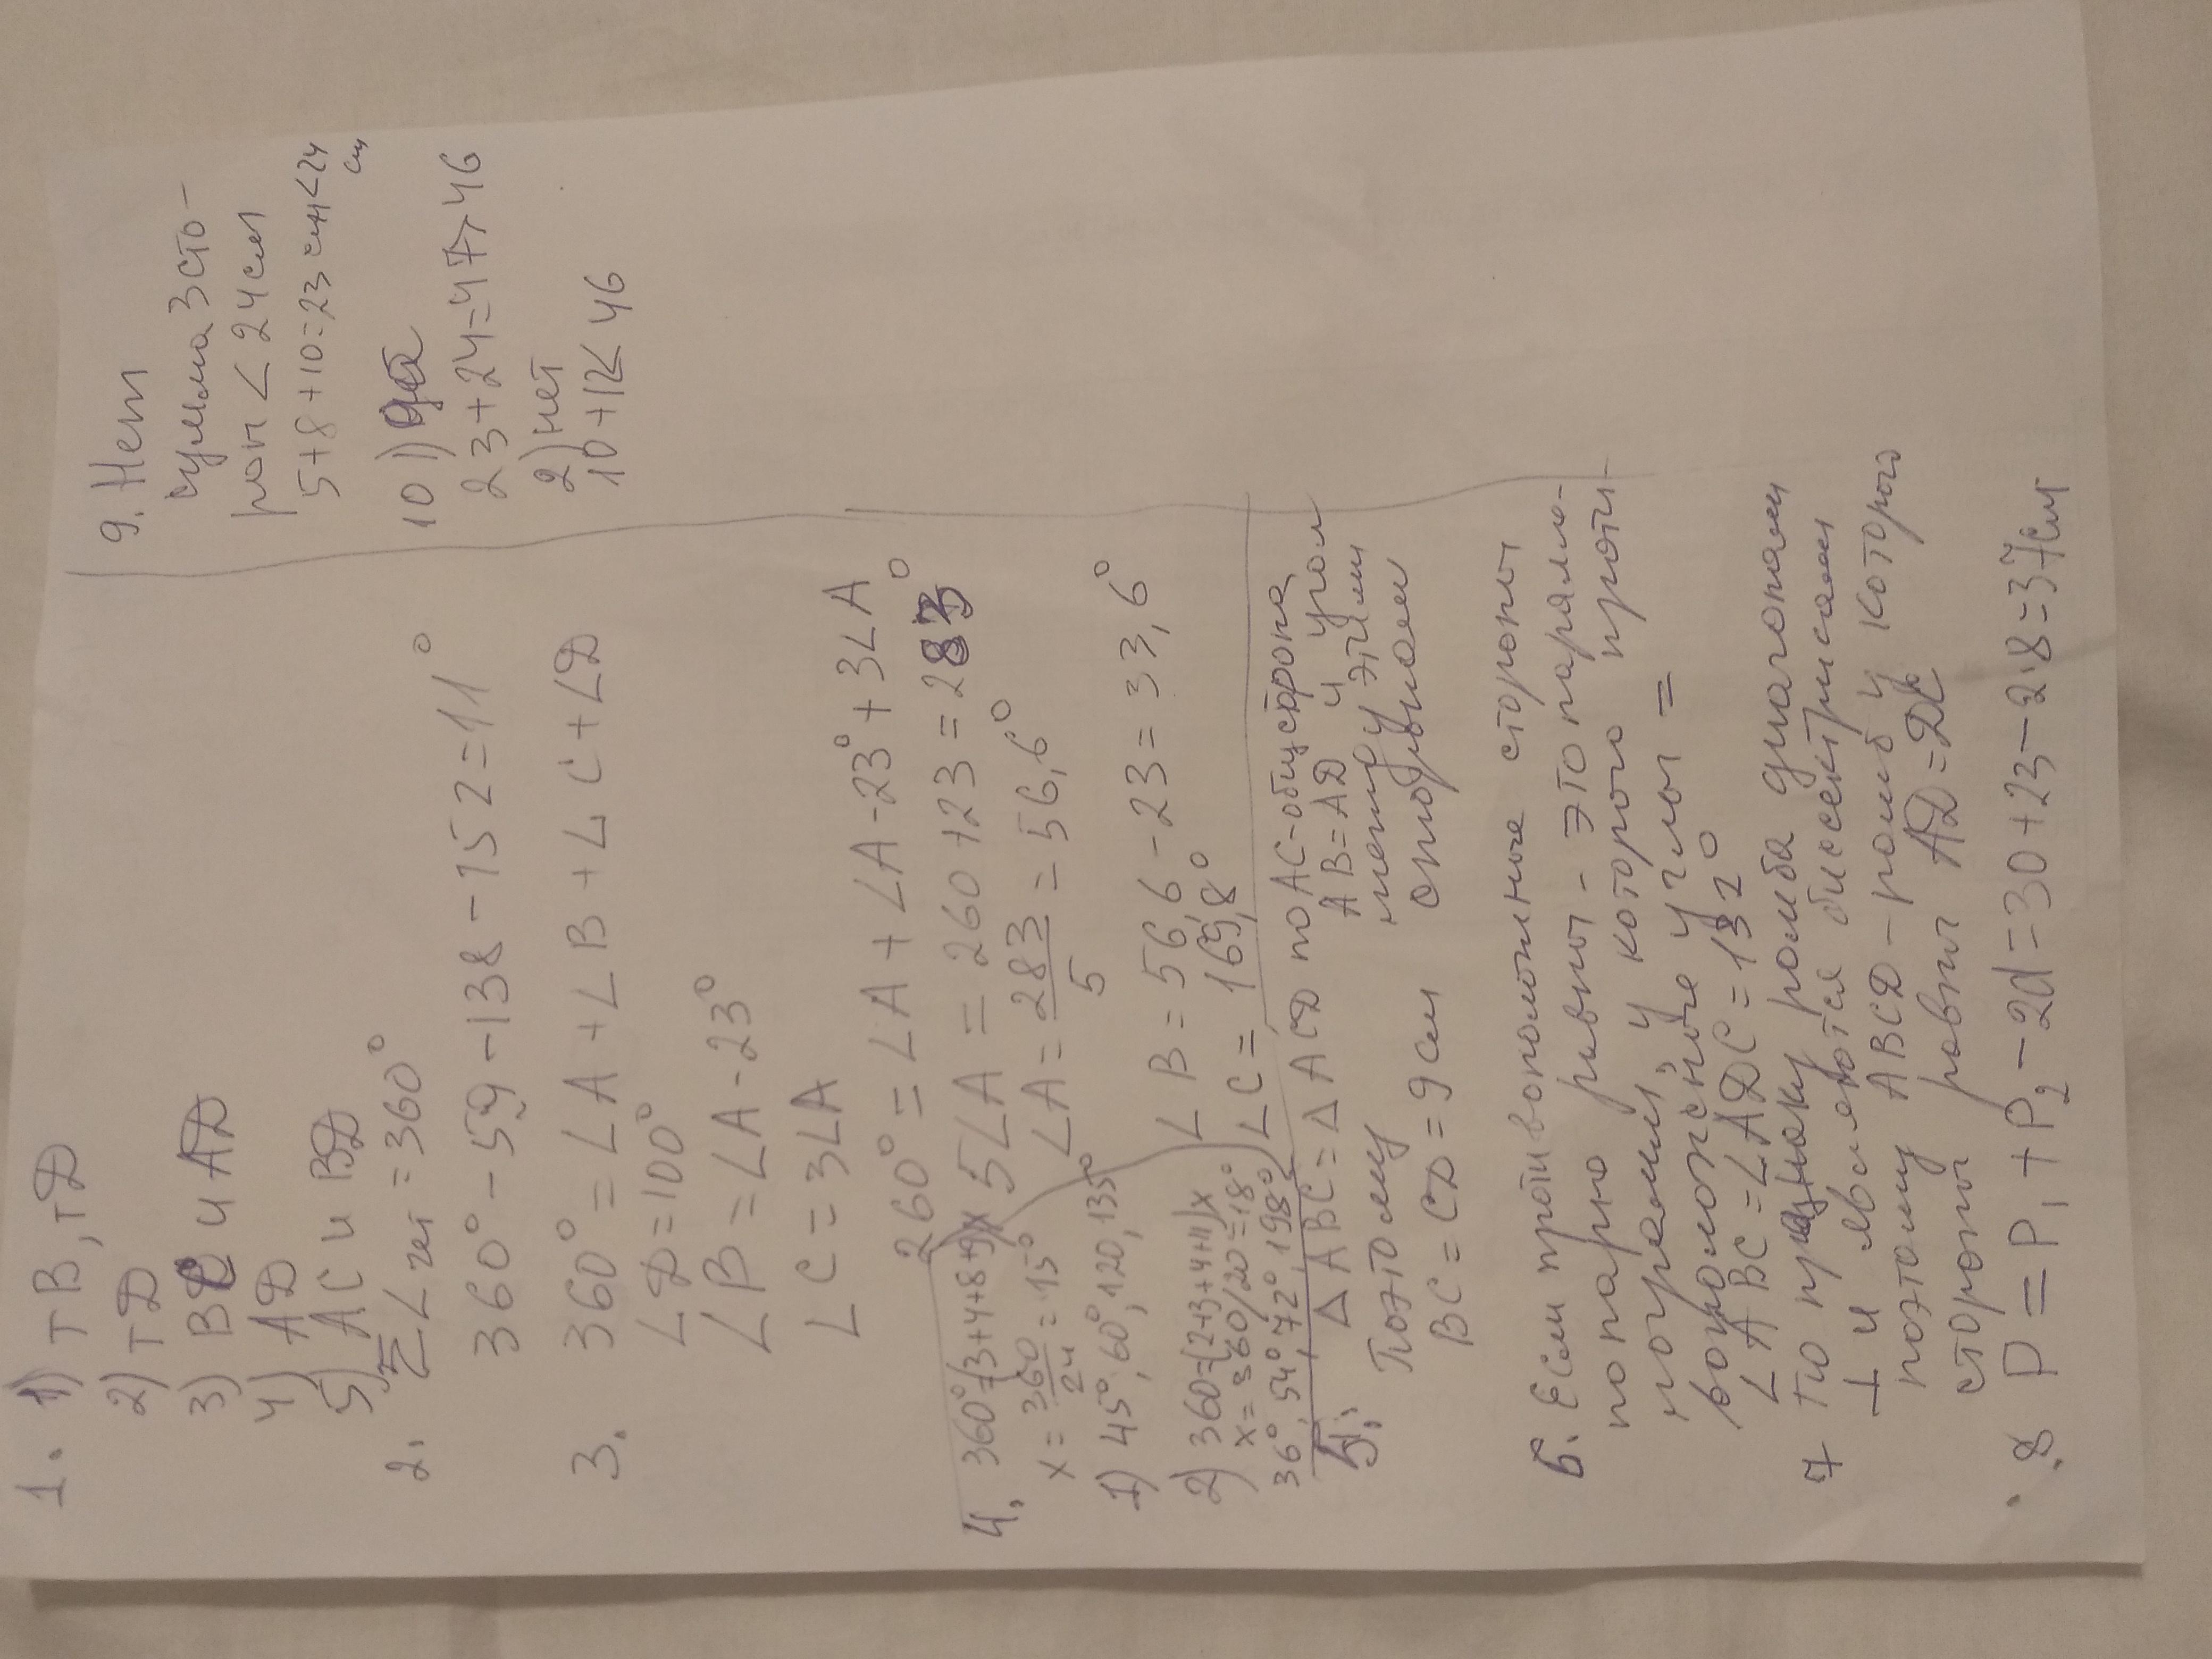 1. 1) тB, тD
2) тD
3) BC и AD
4) AD
5) AC и BD
2. Σ∠ чет = 360°
360° - 59 - 138 - 152 = 11°
3. 360° = ∠A + ∠B + ∠C + ∠D
∠D = 100°
∠B = ∠A - 23°
∠C = 3∠A
260° = ∠A + ∠A - 23° + 3∠A
5∠A = 260 + 23 = 283°
∠A = 283/5 = 56,6°
∠B = 56,6 - 23 = 33,6°
∠C = 169,8°
4. 360° = (3+4+8+9)x
x = 360/24 = 15°
1) 45°, 60°, 120, 135°
2) 360 = (2+3+4+11)x
x = 360/20 = 18°
36°, 54°, 72°, 198°
5. △ABC = △ACD по AC - общ сторона
AB = AD и угол
Поэтому между этими
BC = CD = 9 см сторонами
6. Если противоположные стороны
попарно равны - это паралле-
лограмм, у которого проти-
воположные углы =
∠ABC = ∠ADC = 132°
7 по признаку ромба диагонали
⊥ и являются биссектрисами
поэтому ABCD - ромб у которого
стороны равны AD = DC
8. P = P₁ + P₂ - 2d = 30 + 23 - 2·8 = 37см
9. Нет
сумма 3 сто-
рон < 24см
5+8+10=23см<24
см
10 1) да
23+24=47>46
2) нет
10+12<46